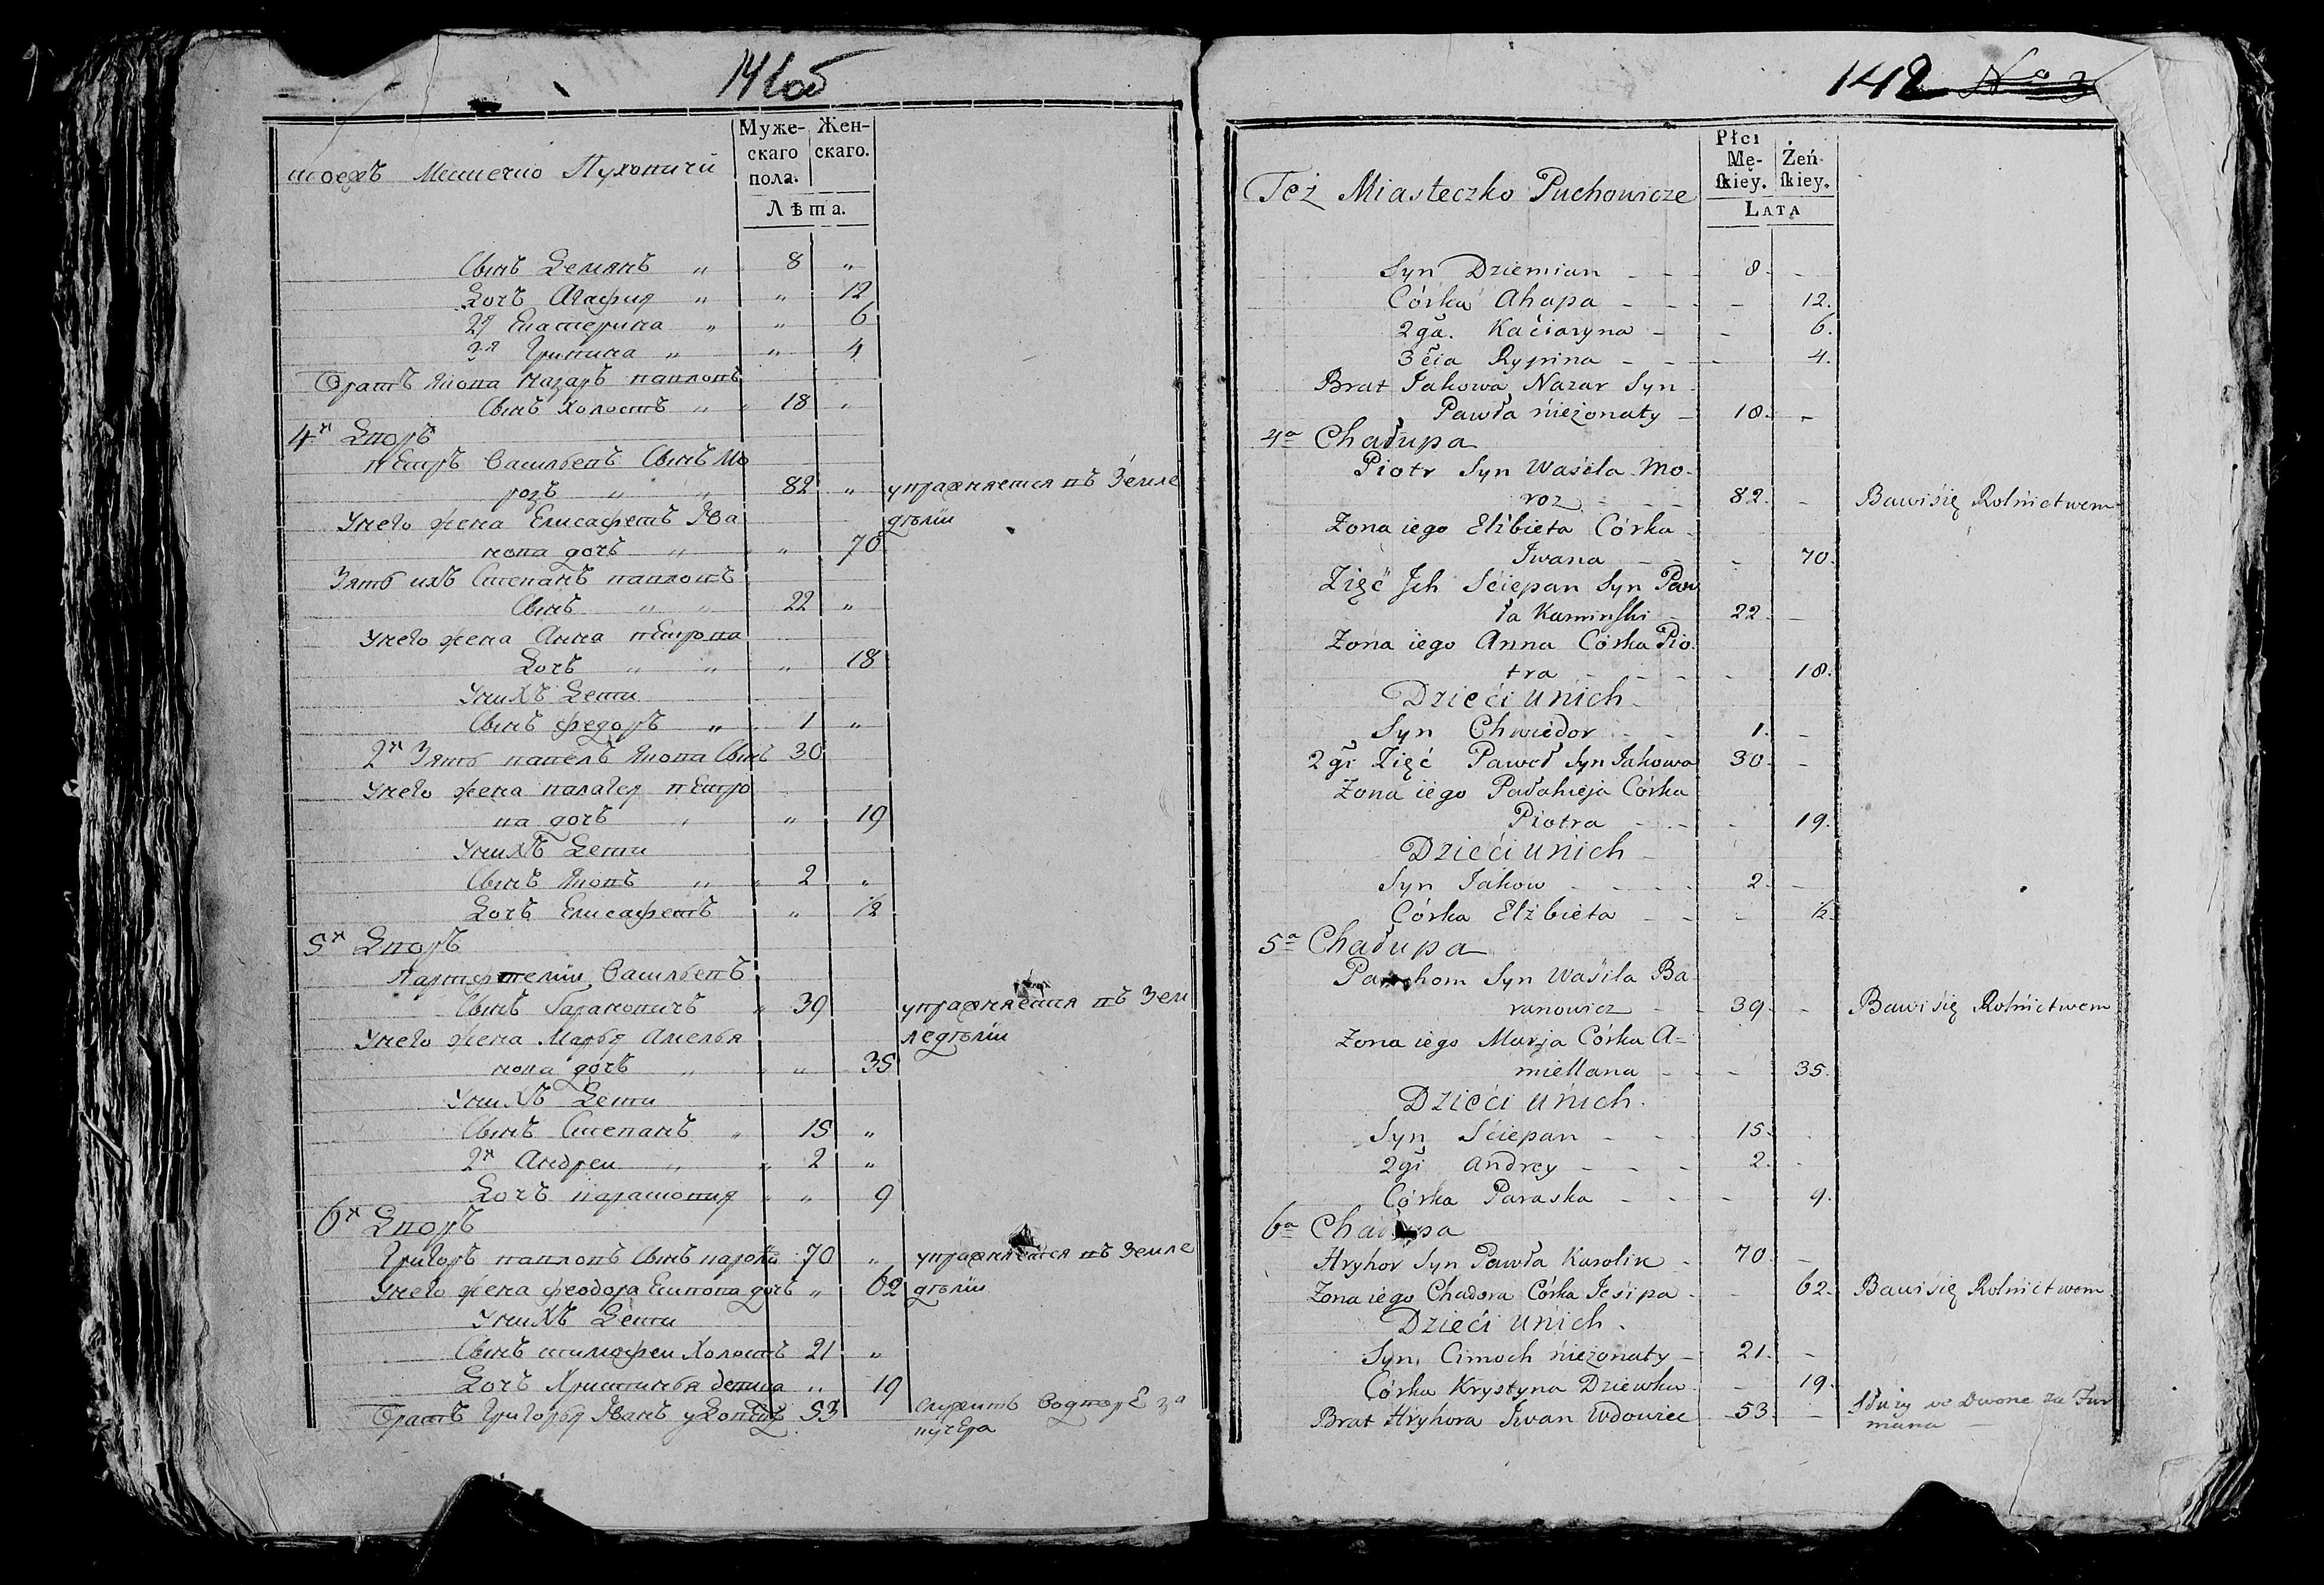 141об
Муже- Жен-
скаго скаго.
пола.
Лѣта.
тоежъ Местечко Пуховичи
Сынъ Демянъ " 8 "
Дочъ Агафия " " 12
2я Екатерина " " 6
3я Грипина " " 4
Братъ Якова Назаръ павловъ
Сынъ Холостъ " 18 "
4й Дворъ
пЕтръ Васильевъ Сынъ Мо
розъ " " 82 " упражняется въ Земле
Унего жена Елисафетъ Ива дѣлии
нова дочъ " " 70
Зять ихъ Степанъ павловъ
Сынъ " " 22 "
Унего жена Анна пЕтрова
Дочъ " " " 18
Унихъ Дети
Сынъ федоръ " 1 "
2й Зять павелъ Якова Сынъ 30
Унего жена палагея пЕтро
ва дочъ " " 19
Унихъ Дети
Сынъ Яковъ " 2 "
Дочъ Елисафетъ " 1/2
5й Дворъ
Васильевъ
Сынъ Барановичъ " 39 упражняется въ Зем
Унего жена Марья Амелья ледѣлии
нова дочъ " " 35
Унихъ Дети
Сынъ Степанъ " 15 "
2й Андреи " 2 "
Дочъ парасковия " " 9
6й Дворъ
Григоръ павловъ Сынъ 70 " упражняется въ Земле
Унего жена феодора Есипова дочъ " 62 дѣлии
Унихъ Дети
Сынъ тимофеи Холостъ 21 "
Дочъ Христинья девка " 19
Братъ Григорья Иванъ уДовецъ 53 Служитъ Водворе за
кучЕра
142 No 2
Płci
Mę- Żeń-
ſkiey. ſkiey.
LATA
Też Miasteczko Puchowicze
Syn Dziemian - - 8. -
Córka Ahapa - - - - 12.
2gā. Kaciaryna - - 6.
3cia Rypina - - - - 4.
Brat Jakowa Nazar Syn
Pawła nieżonaty - 18. -
4a Chałupa
Piotr Syn Waśila Mo-
roz - - - 82. - Bawi się Rolnictwem
Zona iego Elżbieta Córka
Iwana - - - 70.
Zięć Jch Sciepan Syn Paw
ła Kaminſki - 22. -
Zona iego Anna Córka Pio-
tra - - - - 18.
Dzieci unich
Syn Chwiedor - - 1. -
2gi Zięć Paweł Syn Jakowa 30. -
Zona iego Pałahieja Córka
Piotra - - - 19.
Dzieci unich
Syn Jakow - - - - 2. -
Córka Elżbieta - - - 1/2
5a Chałupa
Parchom Syn Waśila Ba
ranowicz - - 39. - Bawi się Rolnictwem
Zona iego Marja Córka A-
miellana - - - 35.
Dzieci unich.
Syn Sciepan - - - 15. -
2gi Andrey - - - 2. -
Córka Paraska - - - - 9.
6a Chałupa
Hryhor Syn Pawła Karolik - 70. -
Zona iego Chadora Córka Jesipa - - 62. Bawi się Rolnictwem
Dzieci unich.
Syn Cimoch nieżonaty - 21. -
Córka Krystyna Dziewka - - 19.
Brat Hryhora Iwan Wdowiec - 53. - Służy we Dworze za Fur
mana -